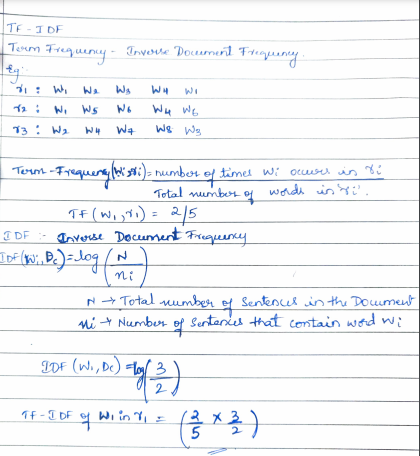 TF - IDF
Term Frequency - Inverse Document Frequency.
Eg:-
r1 : W1 W2 W3 W4 W1
r2 : W1 W5 W6 W4 W6
r3 : W2 W4 W7 W8 W3
Term-Frequency(Wi,ri) = number of times Wi occurs in ri
Total number of words in 'ri'.
TF(W1,r1) = 2/5
IDF :- Inverse Document Frequency
IDF(Wi,Dc) = log(N/ni)
N → Total number of sentences in the Document
ni → Number of Sentences that contain word Wi
IDF(W1,Dc) = log(3/2)
TF-IDF of W1 in r1 = (2/5 × 3/2)